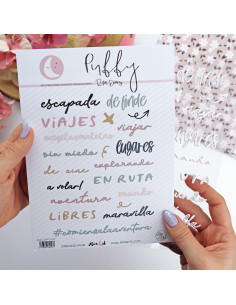 Puffy
escapada de finde
VIAJES
viajar
sin miedo lugares
de cine explorando
a volar! EN RUTA
aventura mundo
LIBRES maravilla
#comienzalaaventura